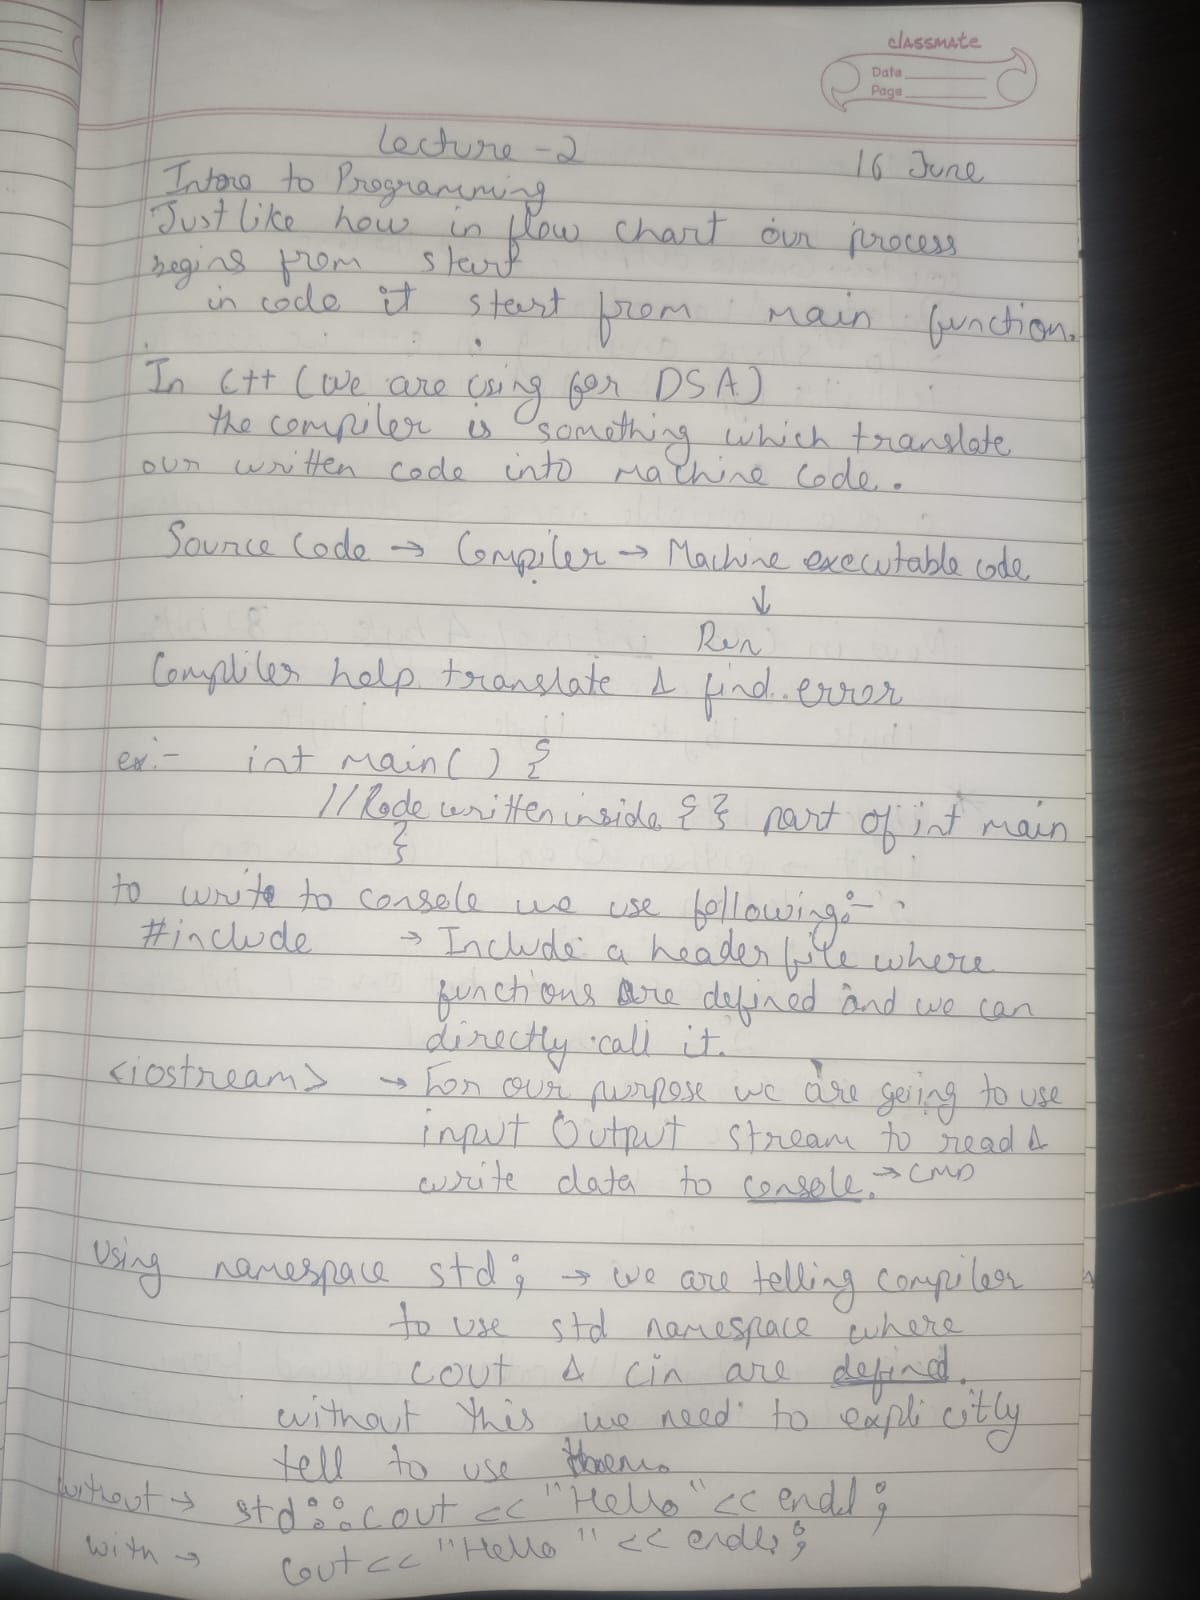 classmate
Date
Page
Lecture -2
16 June
Intro to Programming
Just like how in flow chart our process
begins from start
in code it start from main function.
In C++ (we are using for DSA)
the compiler is something which translate
our written code into Machine Code.
Source Code → Compiler → Machine executable code
↓
Run
Compliler help translate & find error
ex:- int main() {
// Code written inside { } part of int main
}
to write to console we use following:-
#include → Include a header file where
functions are defined and we can
directly call it.
<iostream> → For our purpose we are going to use
input Output stream to read &
write data to console. → CMD
Using namespace std; → we are telling compiler
to use std namespace where
cout & cin are defined.
without this we need to explicitly
tell to use them.
without → std::cout << "Hello" << endl;
with → cout << "Hello" << endl;